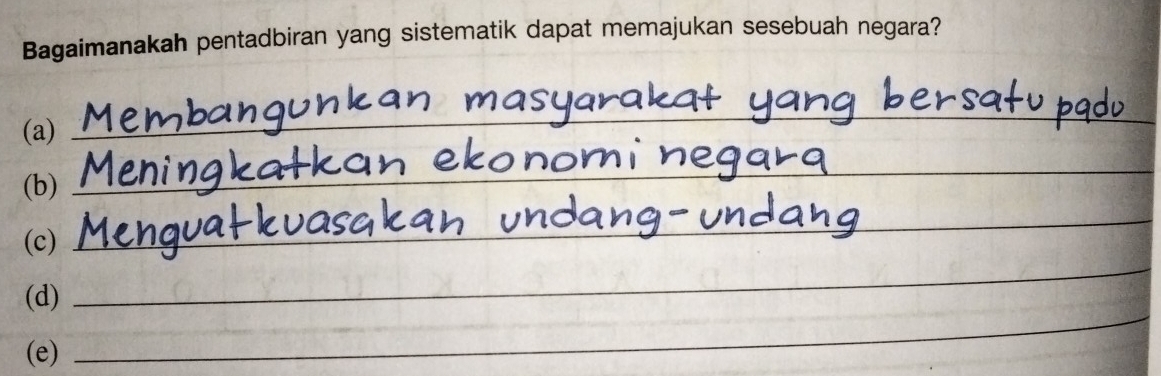 Bagaimanakah pentadbiran yang sistematik dapat memajukan sesebuah negara?
(a) Membangunkan masyarakat yang bersatu padu
(b) Meningkatkan ekonomi negara
(c) Menguatkuasakan undang-undang
(d)
(e)